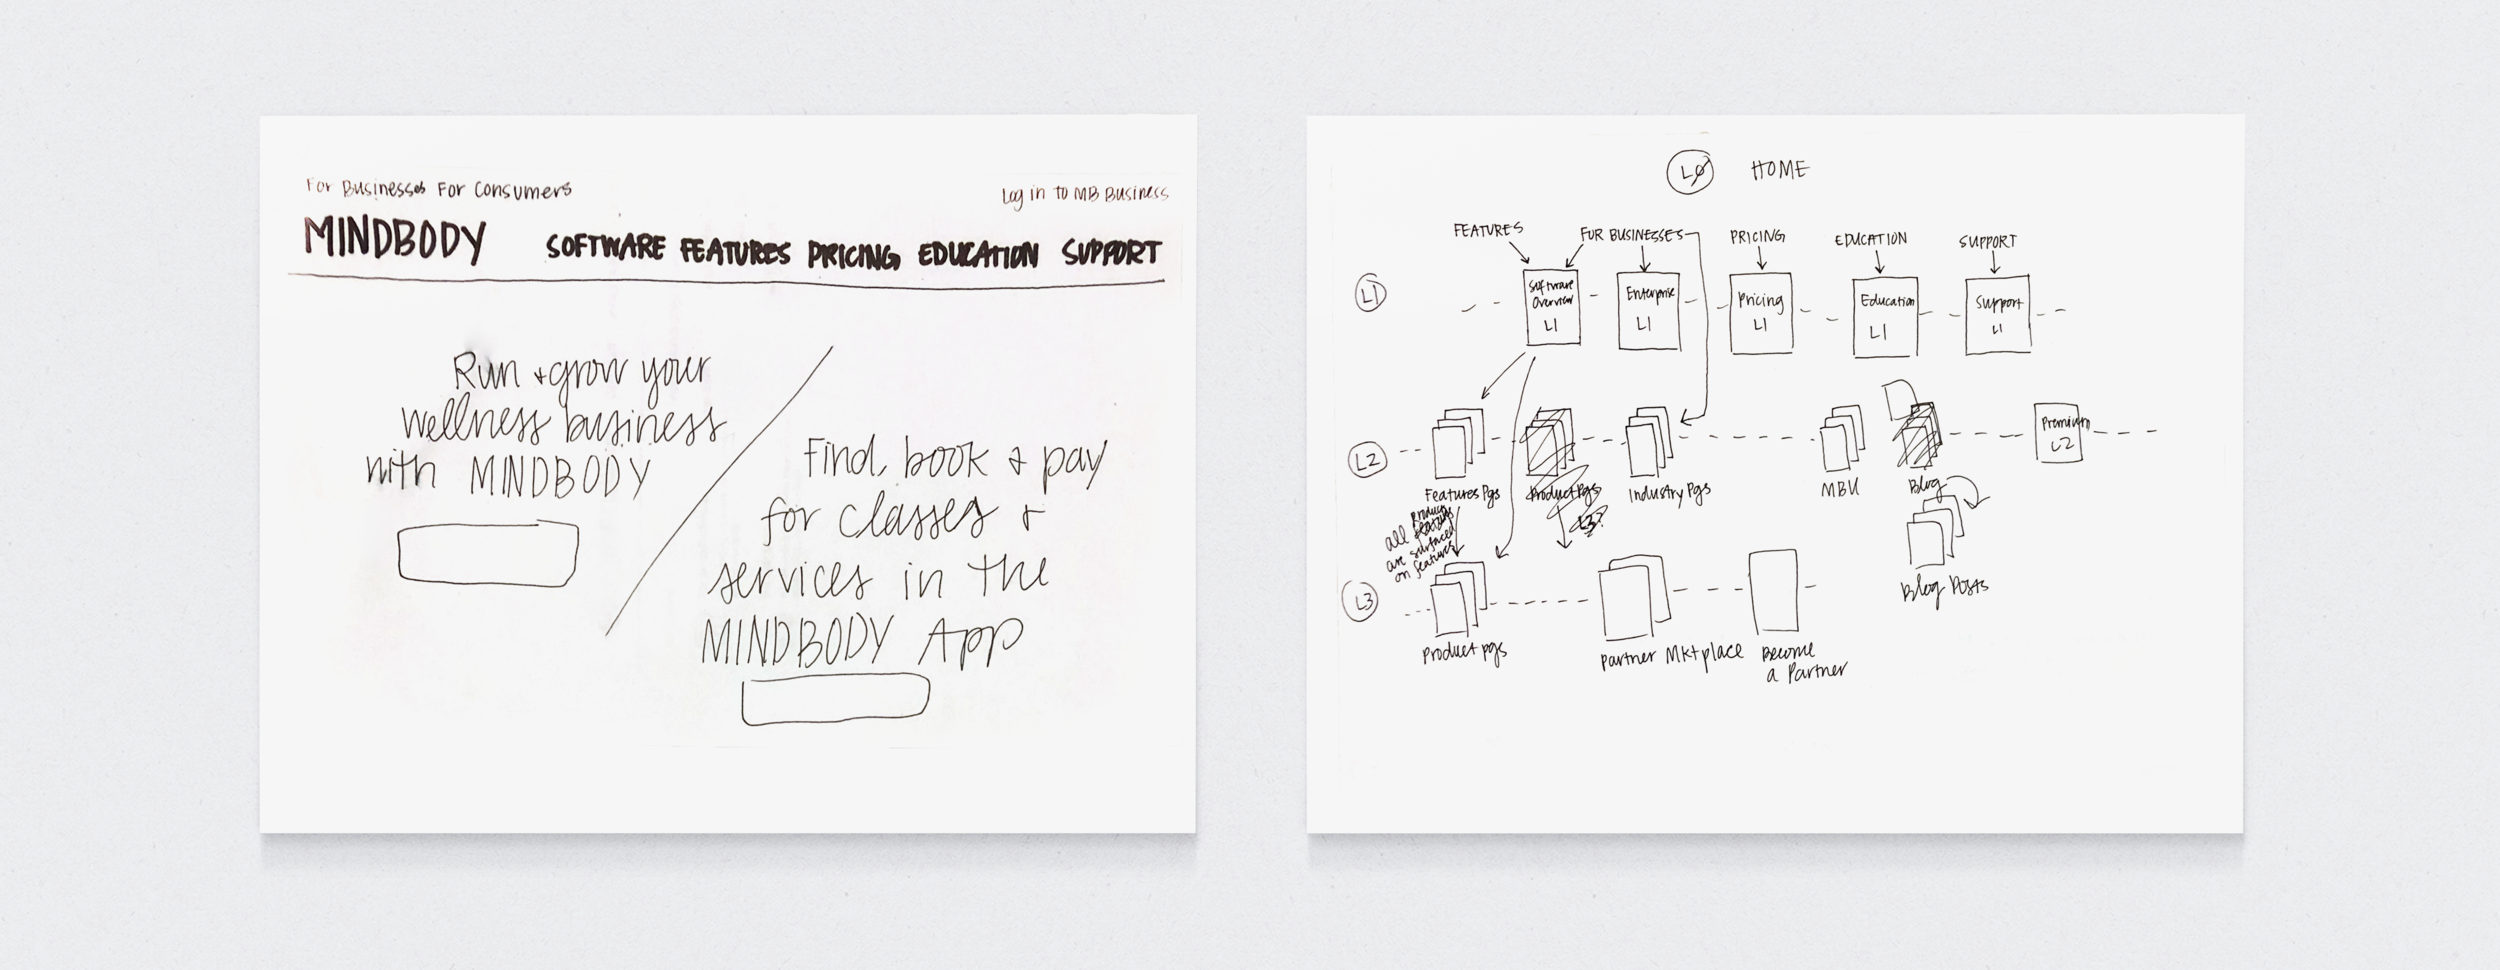 For Businesses For Consumers
Log in to MB Business
MINDBODY SOFTWARE FEATURES PRICING EDUCATION SUPPORT
Run + grow your
wellness business
with MINDBODY
Find, book + pay
for classes +
services in the
MINDBODY App
LØ HOME
FEATURES FOR BUSINESSES PRICING EDUCATION SUPPORT
L1
Software
Overview
L1
Enterprise
L1
Pricing
L1
Education
L1
Support
L1
L2
Features Pgs
Product Pgs
L3?
Industry Pgs
MBU
Blog
Premium
L2
all
products
are surfaced
on features
Blog Posts
L3
Product pgs
Partner Mktplace
Become
a Partner